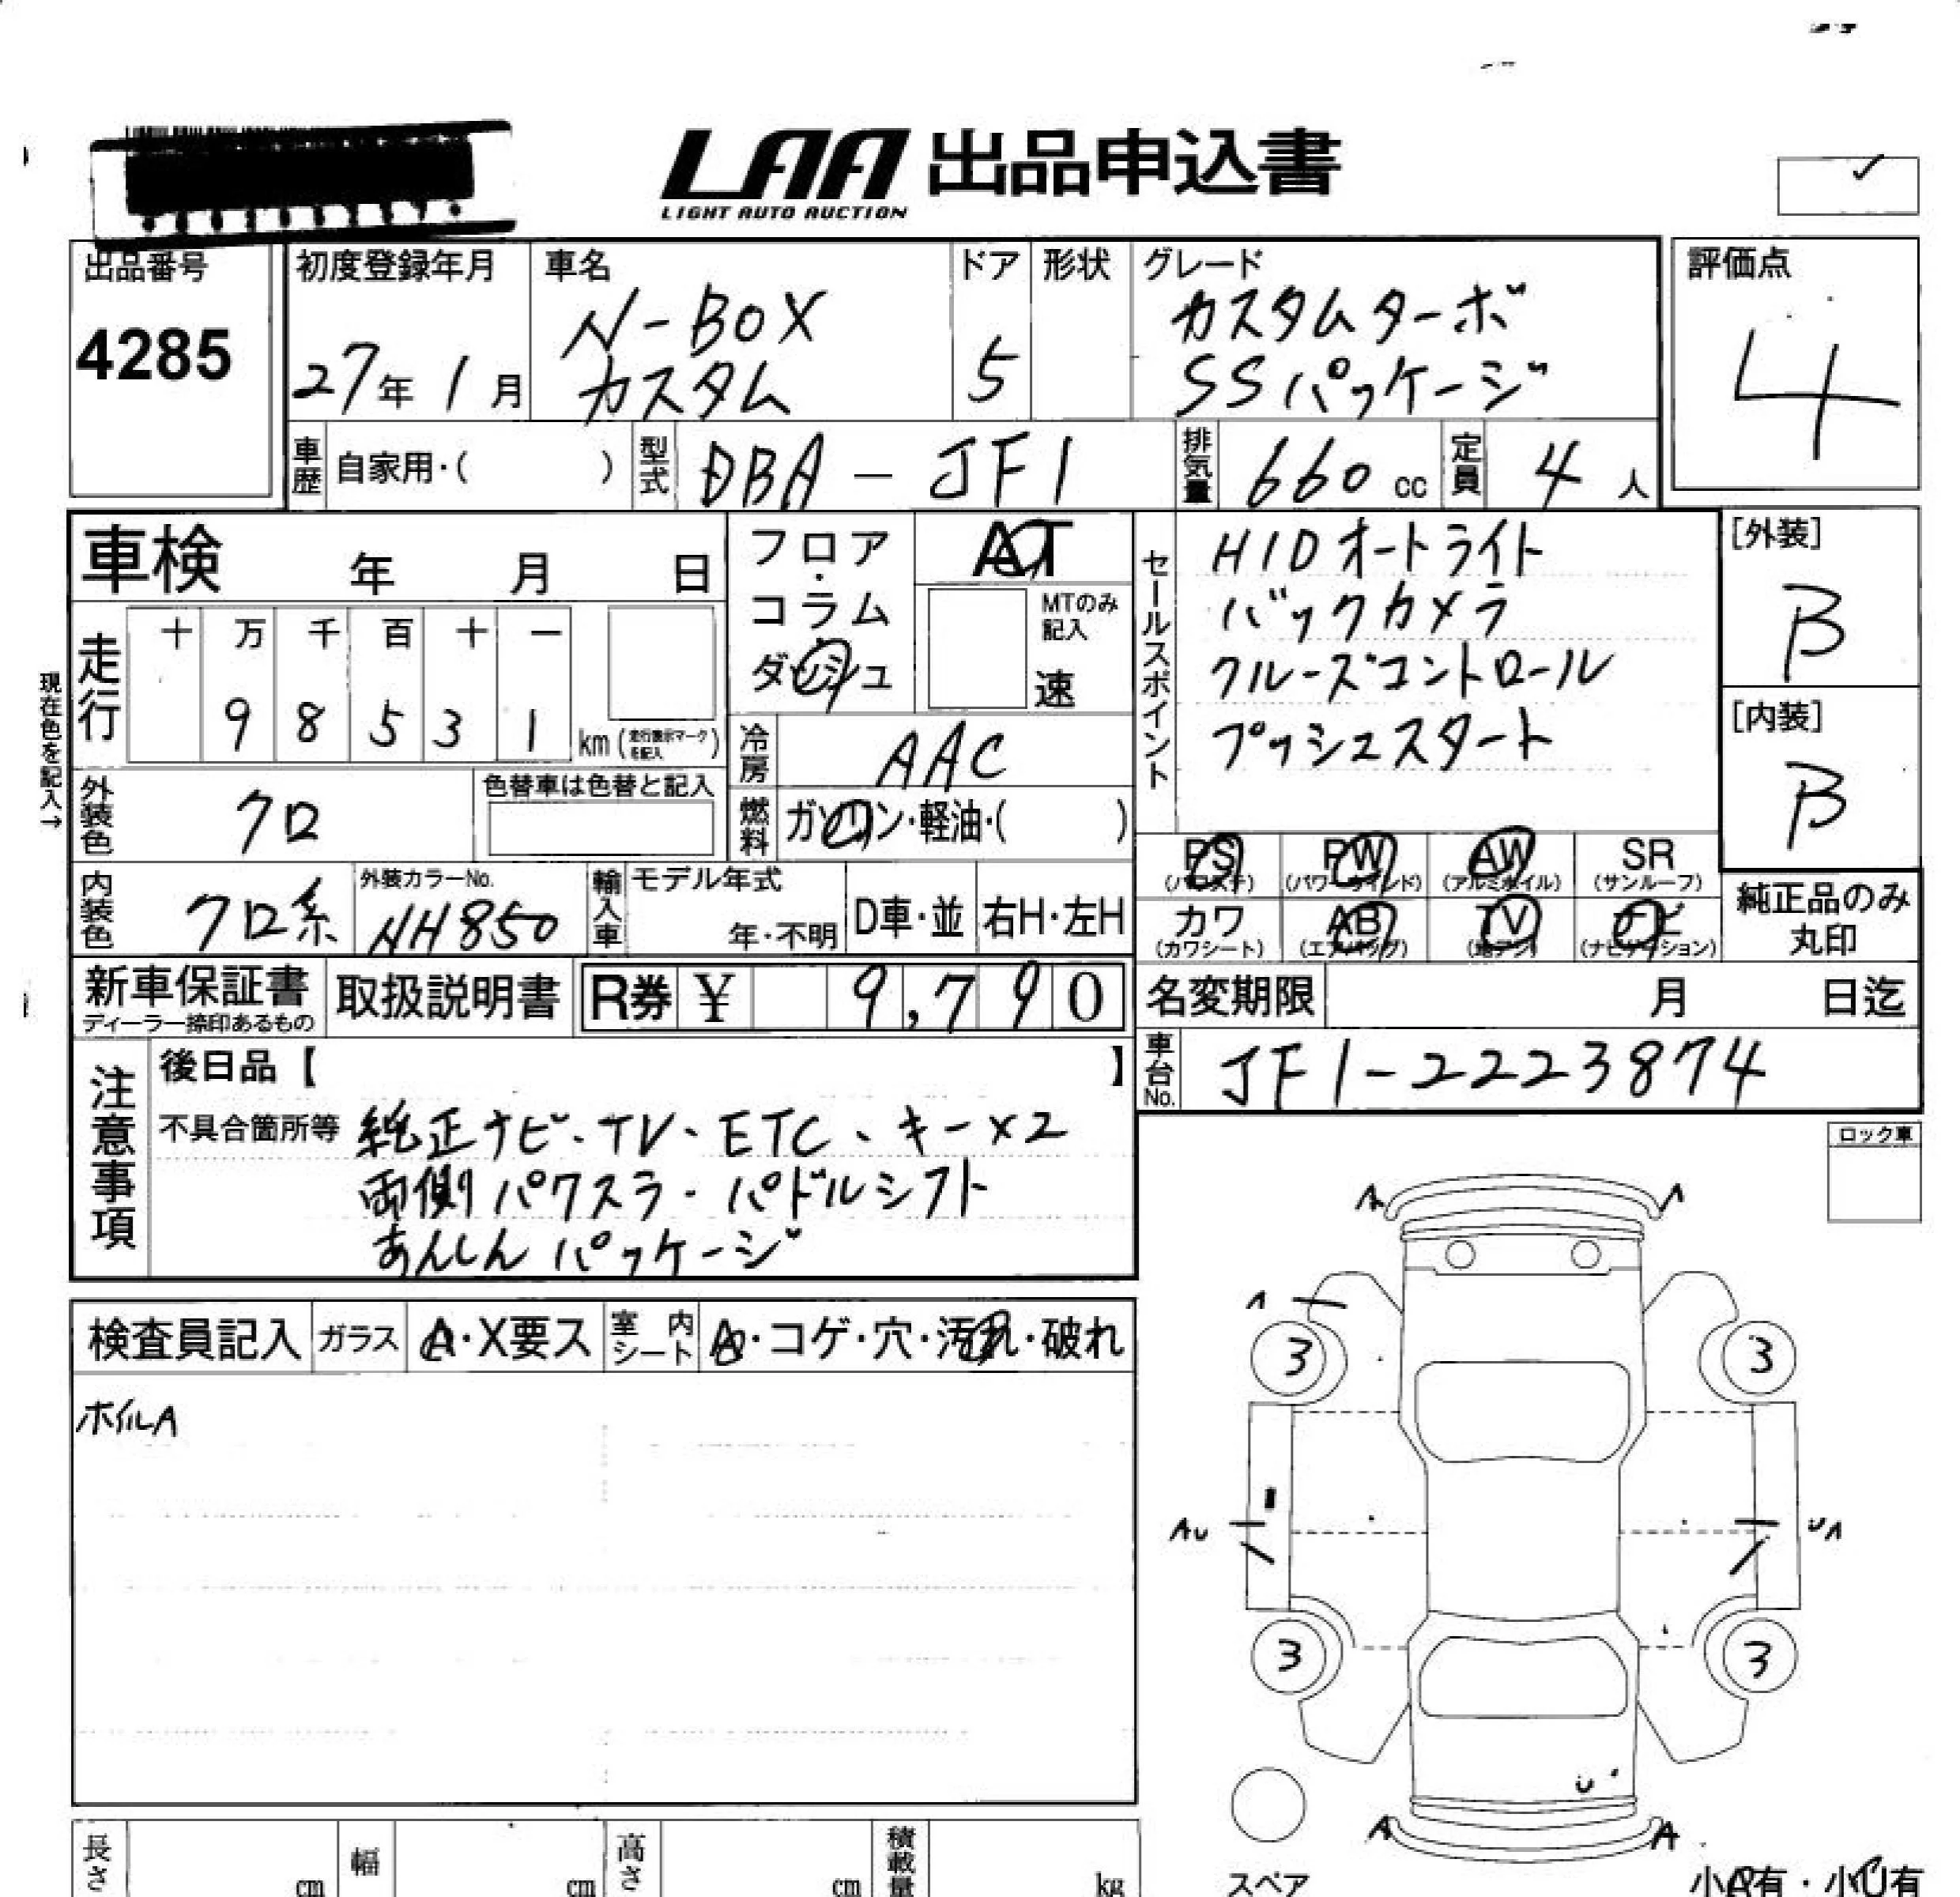 LAA 出品申込書
LIGHT AUTO AUCTION
出品番号
4285
初度登録年月
27年 1月
車名
N-BOX
カスタム
ドア
5
形状
グレード
カスタムターボ
SSパッケージ
評価点
4
車歴 自家用・( )
型式 DBA-JF1
排気量 660 cc
定員 4 人
車検 年 月 日
走行
十 万 千 百 十 一
9 8 5 3 1 km (走行表示マークを記入)
現在色を記入→
外装色 クロ
色替車は色替と記入
内装色 クロ系
外装カラーNo.
NH850
フロア・
コラム・
ダッシュ
AT
MTのみ
記入
速
冷房 AAC
燃料 ガソリン・軽油・( )
輸入車 モデル年式
年・不明
D車・並
右H・左H
セールスポイント
HIDオートライト
バックカメラ
クルーズコントロール
プッシュスタート
[外装]
B
[内装]
B
PS (パワステ)
PW (パワーウインド)
AW (アルミホイル)
SR (サンルーフ)
カワ (カワシート)
AB (エアバッグ)
TV (地デジ)
ナビ (ナビゲーション)
純正品のみ
丸印
新車保証書
ディーラー捺印あるもの
取扱説明書
R券 ¥ 9,790
名変期限 月 日迄
車台No. JF1-2223874
注意事項
後日品【 】
不具合箇所等 純正ナビ・TV・ETC、キー×2
両側パワスラ・パドルシフト
あんしんパッケージ
ロック車
検査員記入
ガラス A・X要ス
室内シート A・コゲ・穴・汚れ・破れ
ホイルA
A A
A
3 3
AU UA
3 3
U
A A
スペア
小A有・小U有
長さ cm
幅 cm
高さ cm
積載量 kg